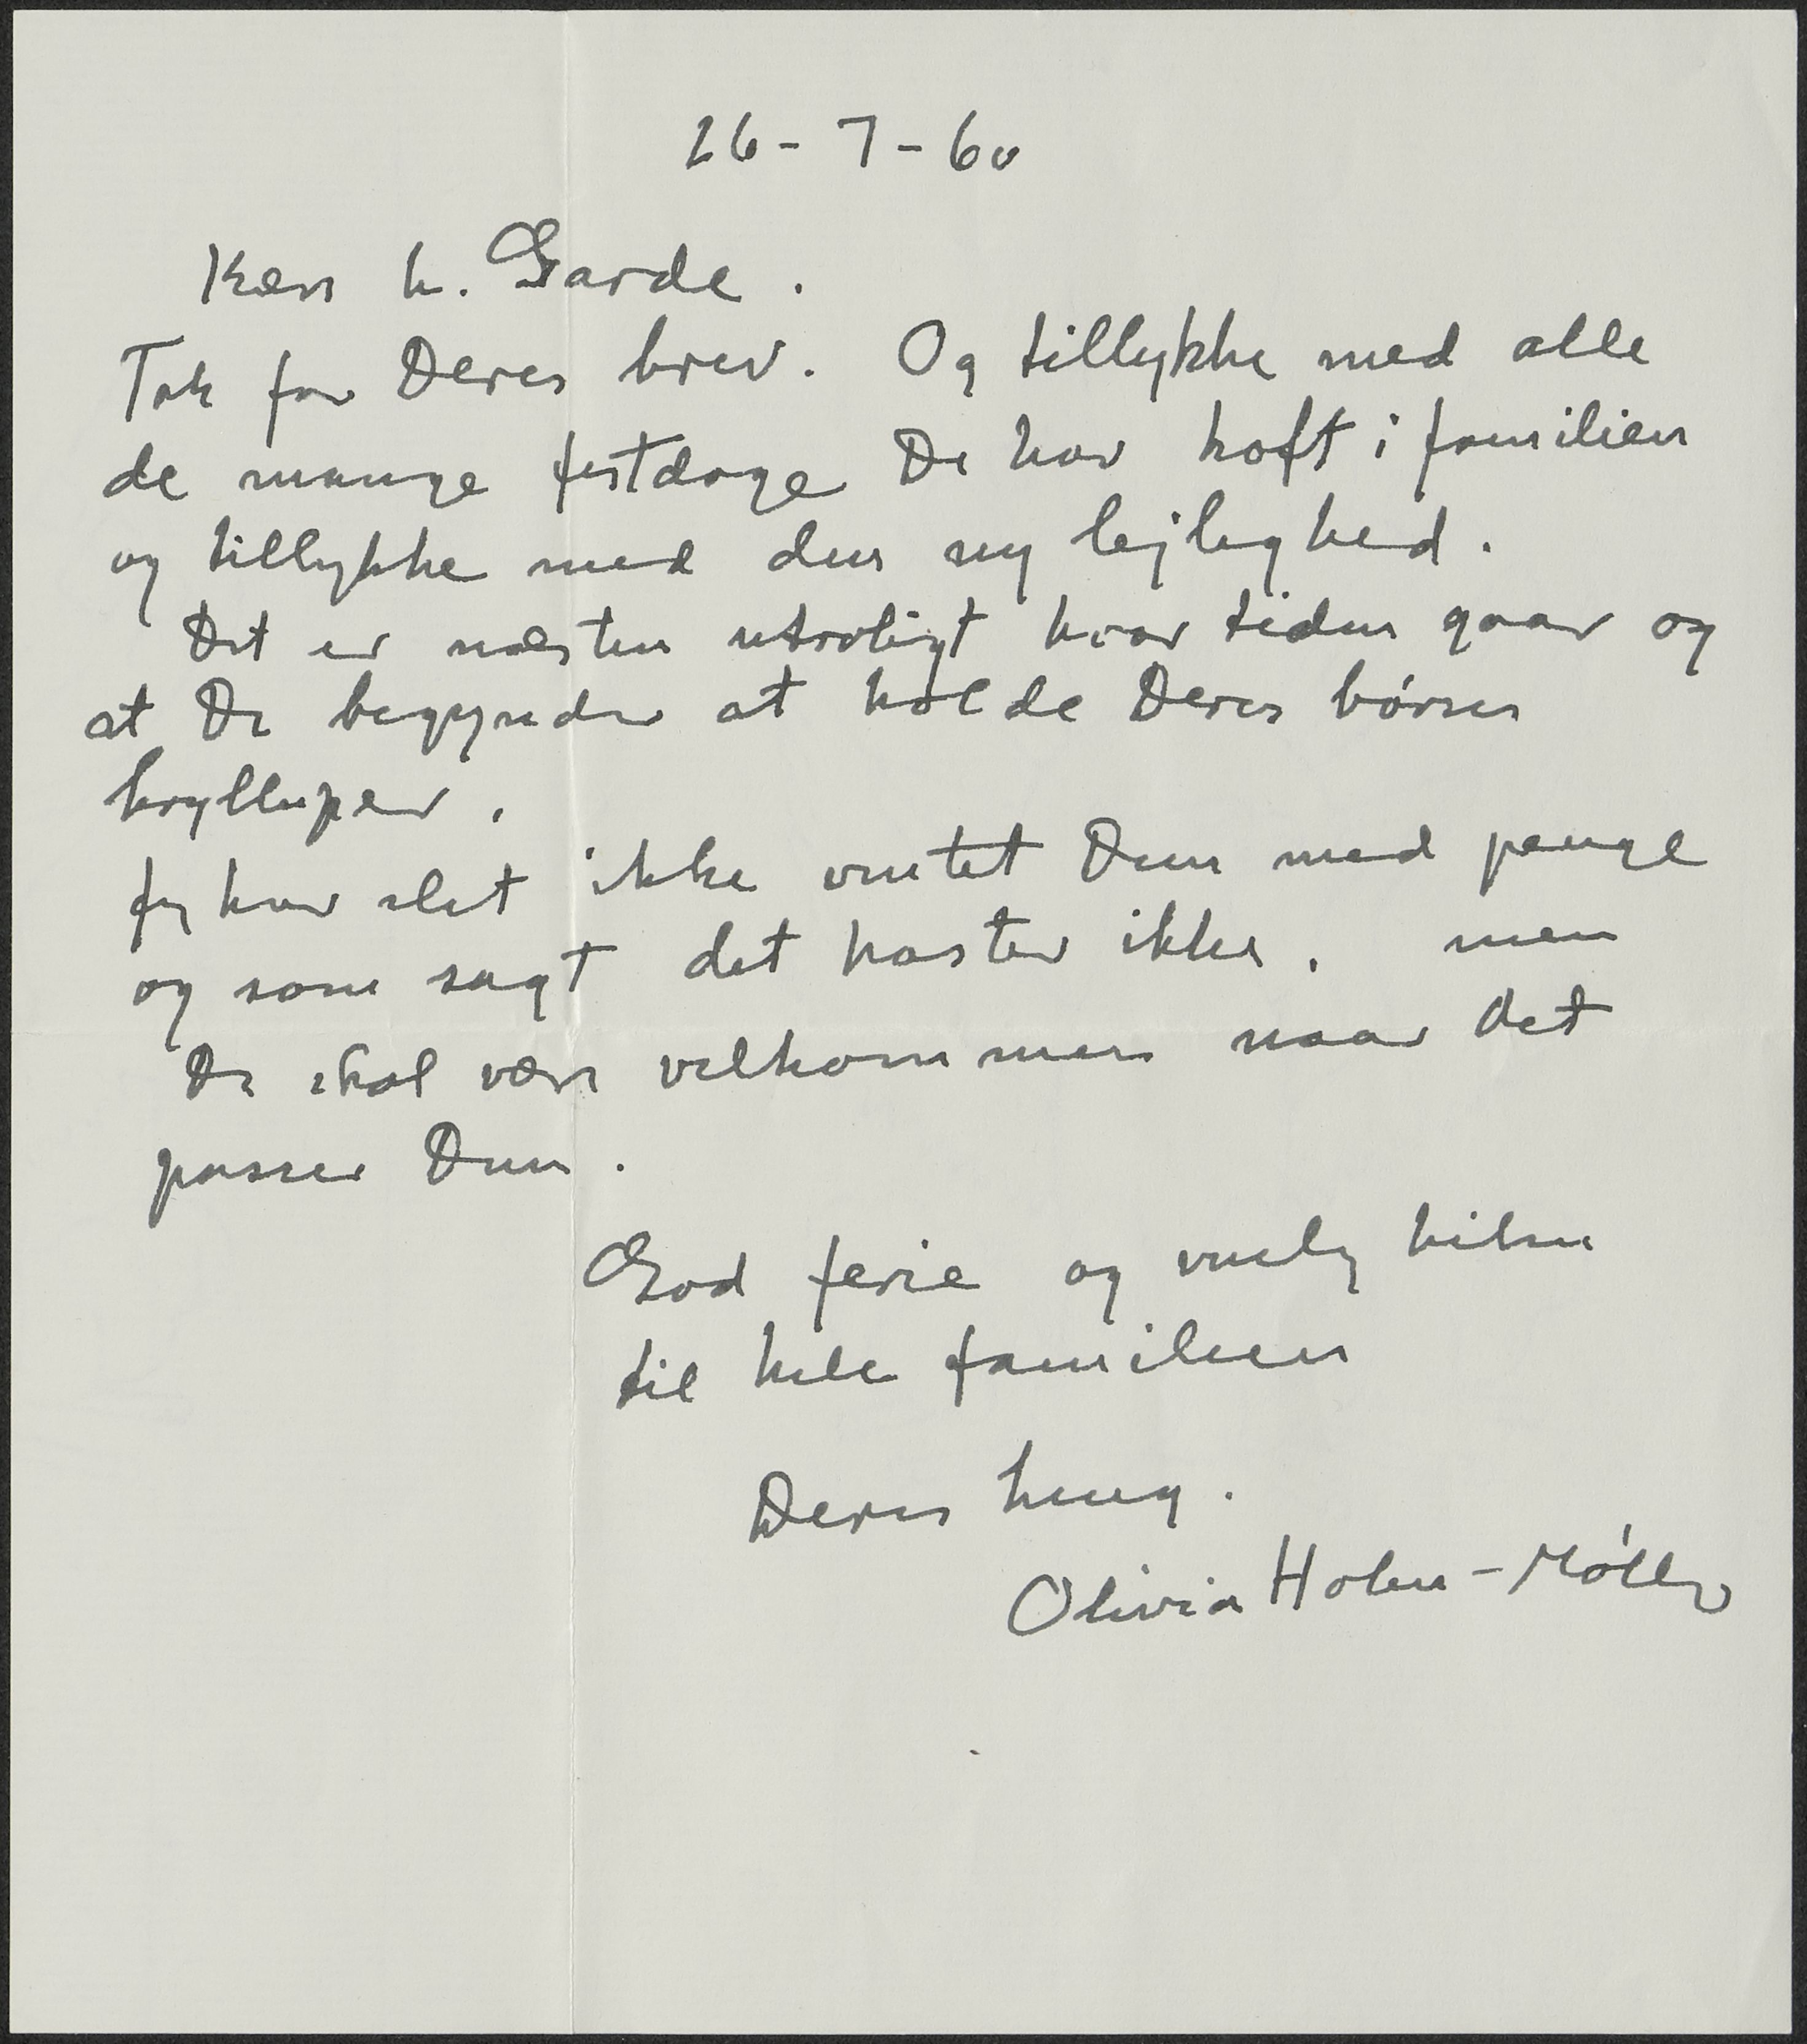 26-7-60
Kære h. Garde.
Tak for Deres brev. Og tillykke med alle
de mange festdage De har haft i familien
og tillykke med den ny lejlighed.
Det er næsten utroligt hvor tiden gaar og
at De begynder at holde Deres børns
brylluper.
Jeg har slet ikke ventet Dem med penge
og som sagt det haster ikke. men
De skal være velkommen naar det
passer Dem.
God ferie og venlig hilsen
til hele familien
Deres heng.
Olivia Holm-Møller